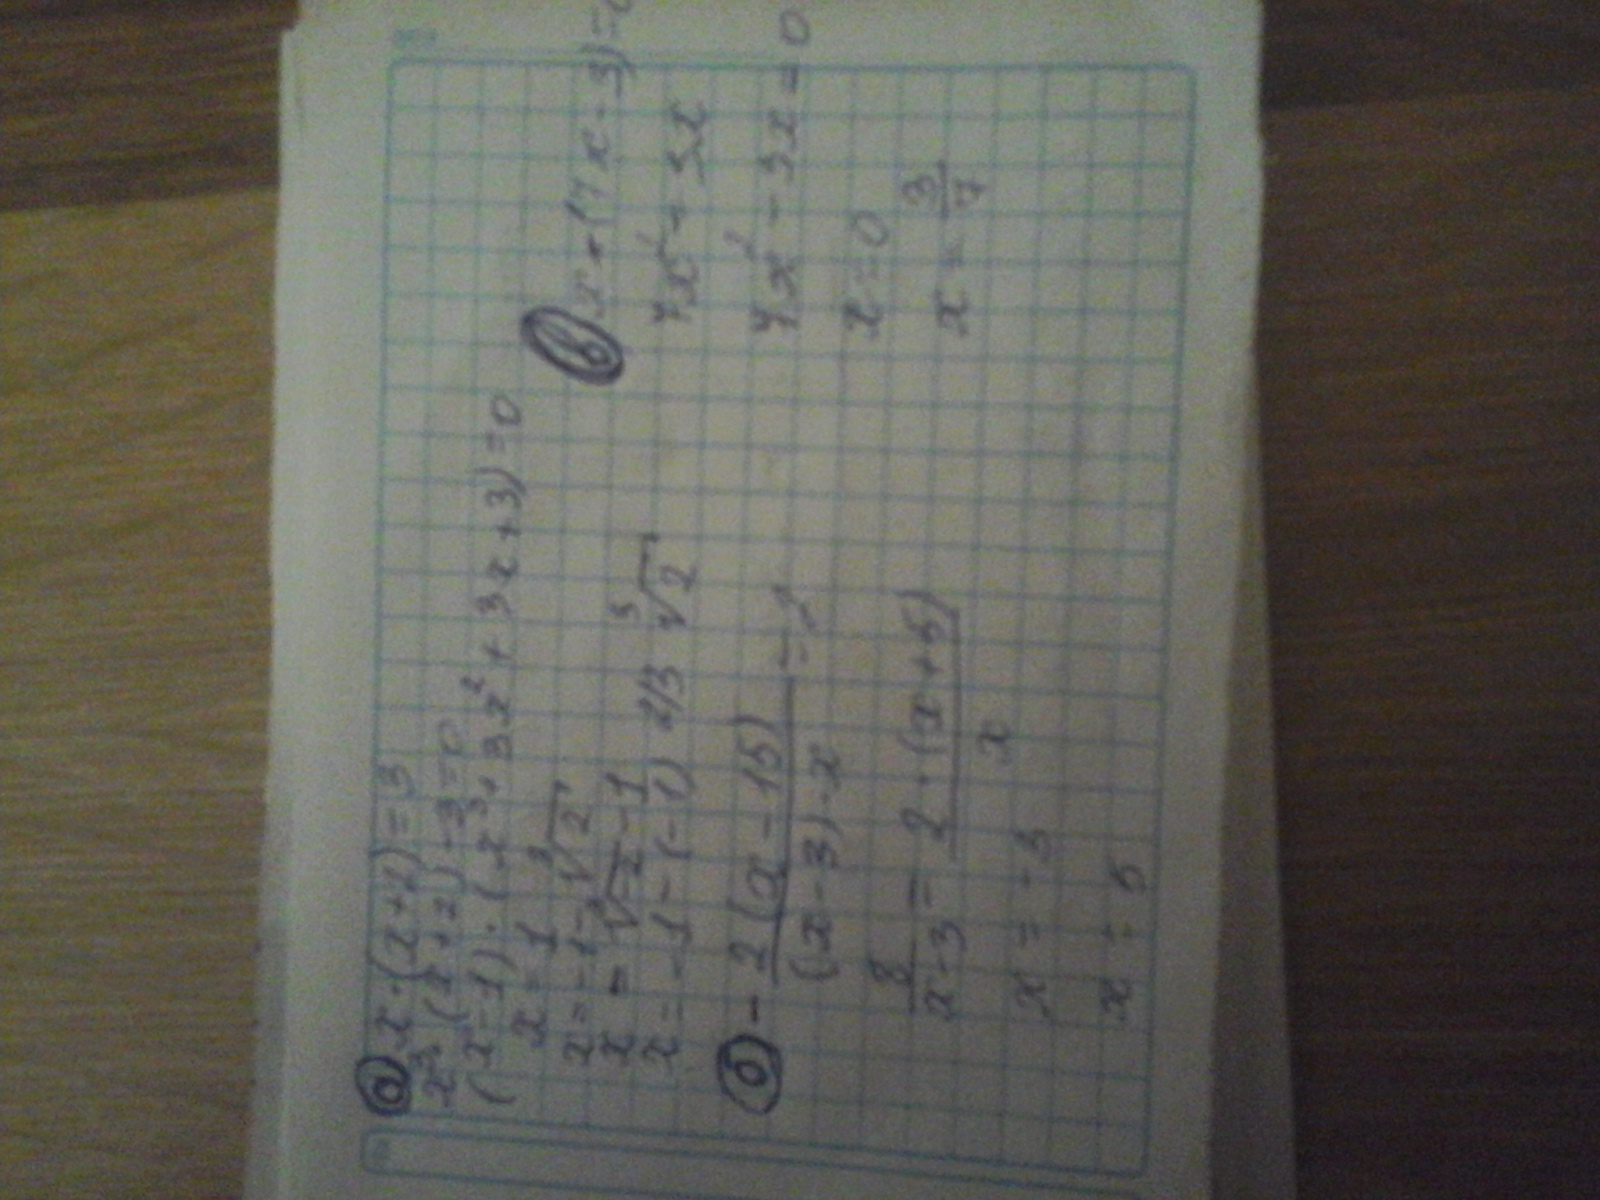 а) x·(x+2)=3
x³(x+2)-3=0
(x-1)·(x³+3x²+3x+3)=0
x=1
x=-1-³√2
x=³√-2-1
x=-1-(-1)^2/3 ³√2
б) -2(x-15)/(x-3)·x=-1
8/x-3=2·(x+5)/x
x=-3
x=5
в) x·(7x-3)=0
7x²-3x
7x²-3x=0
x=0
x=3/7